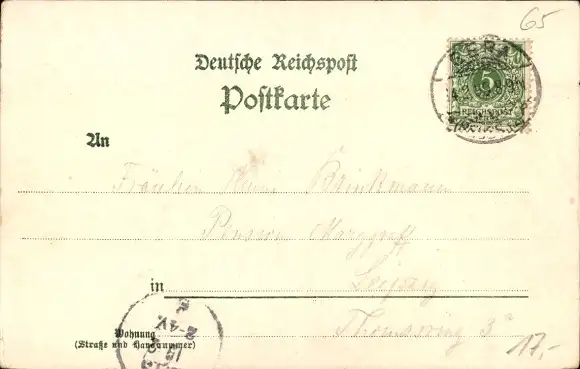 65
Deutsche Reichspost
Postkarte
GERA
5
REICHSPOST
An
Fräulein Brinkmann
Pension Marggraff
in Leipzig
Wohnung
(Straße und Hausnummer)
Thomasring 3
17,-